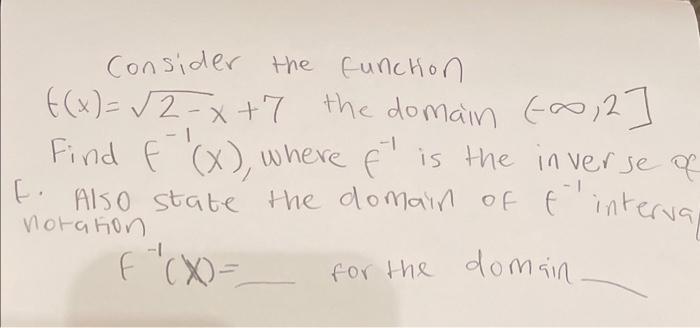 Consider the function
f(x)=√2-x +7 the domain (-∞,2]
Find f⁻¹(x), where f⁻¹ is the inverse of
f. Also state the domain of f⁻¹ interval
notation
f⁻¹(x)=__ for the domain __